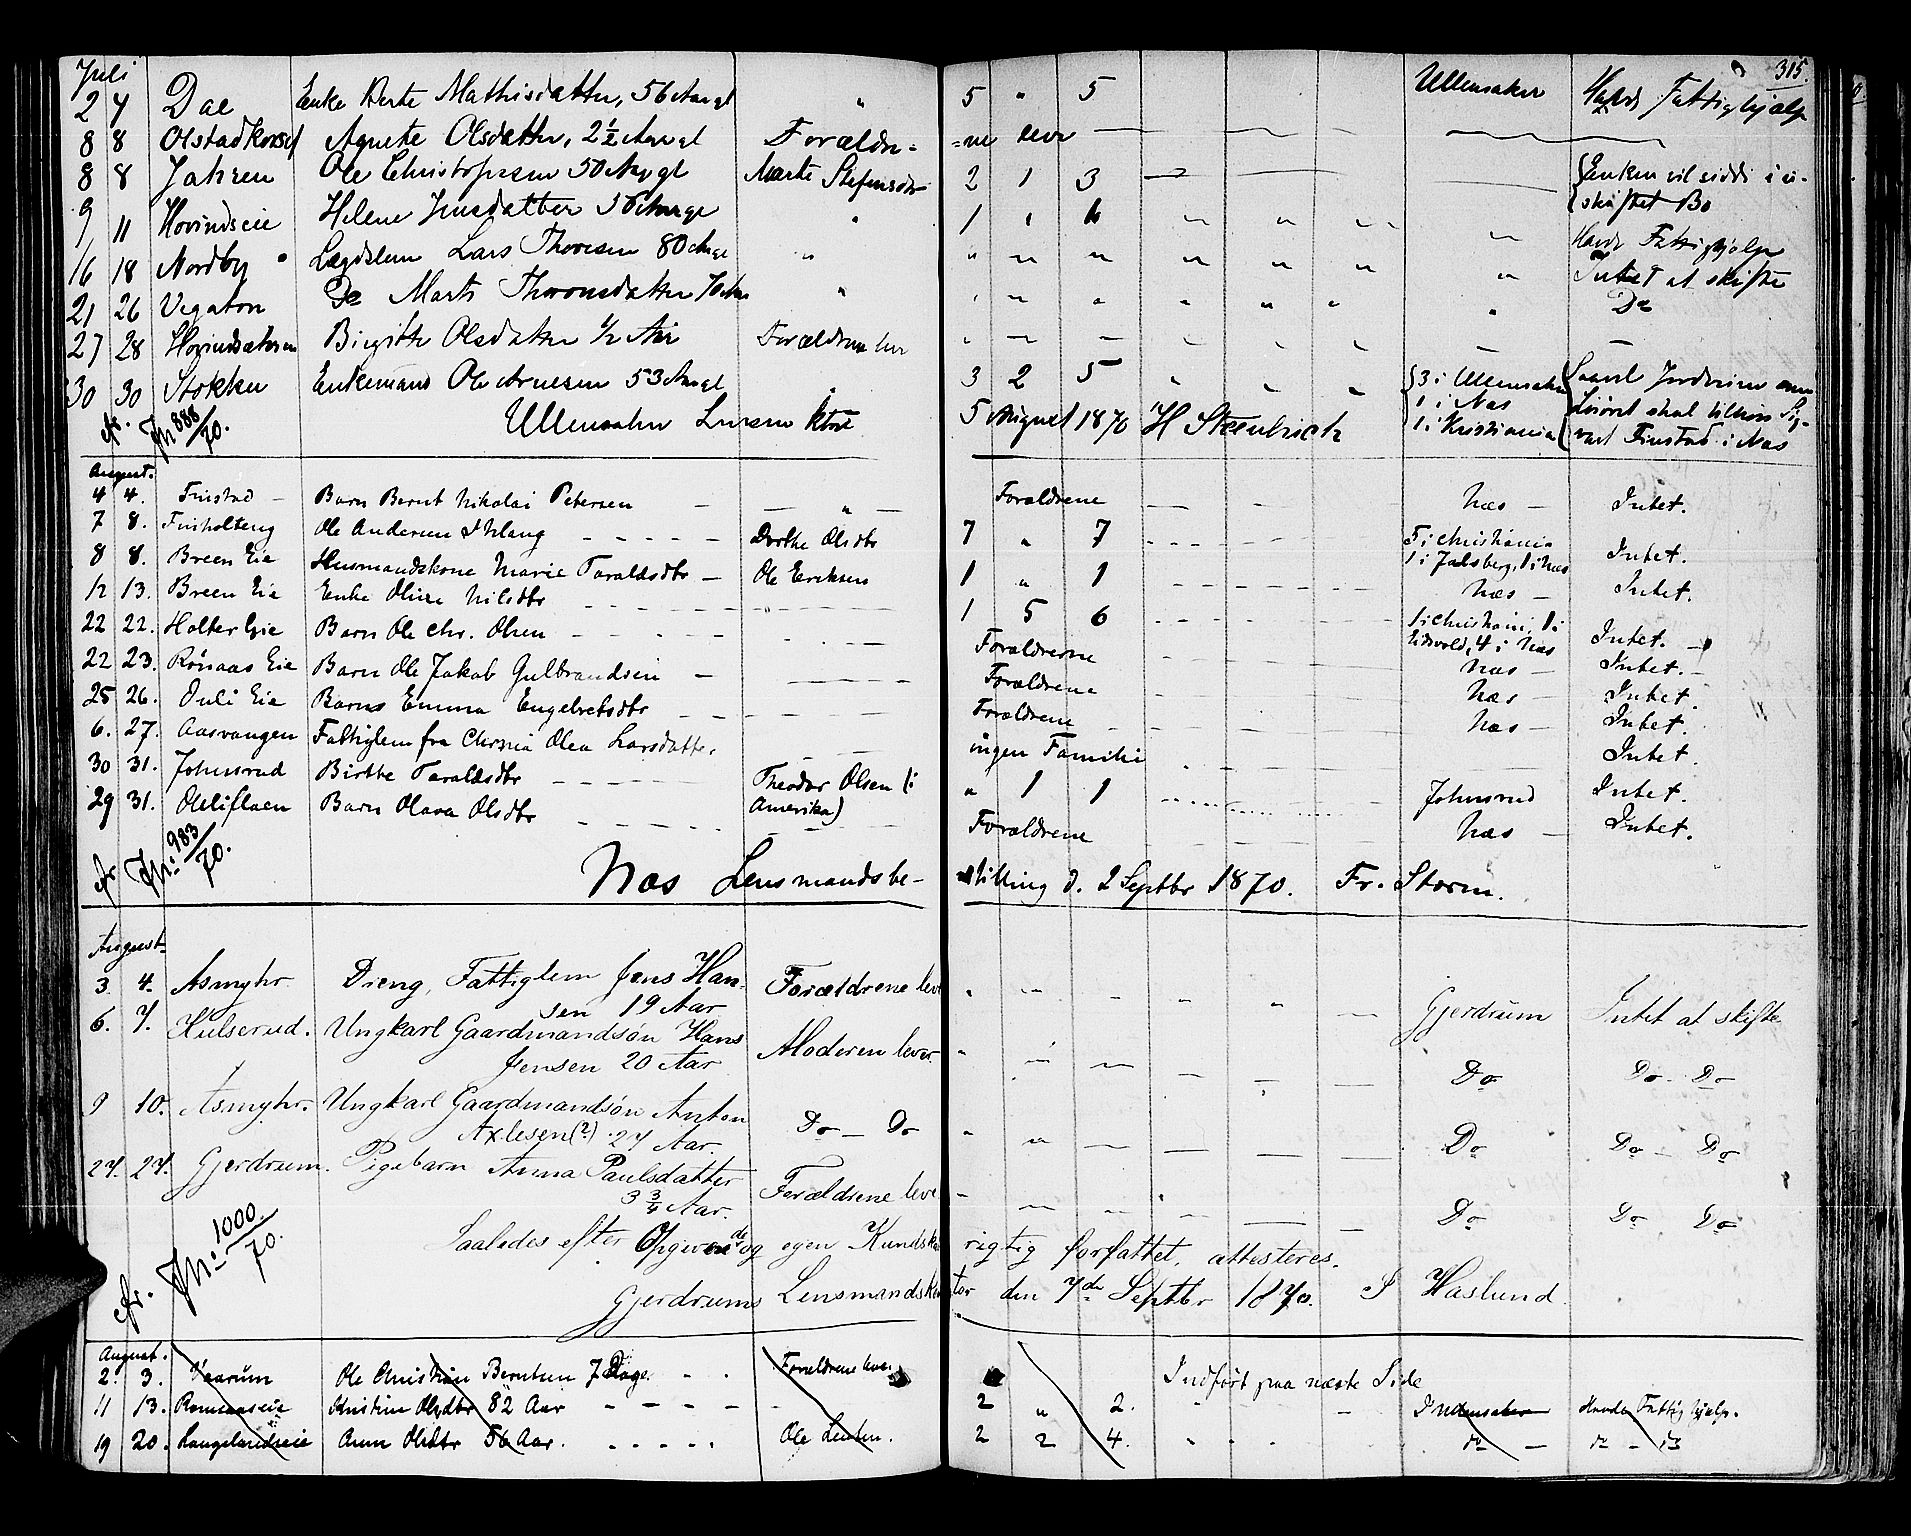 315.
Juli
2 4 Dae Enke Berte Mathisdatter, 56 Aar gl " 5 " 5 Ullensaker Havde Fattighjælp
8 8 Olstad Agnete Olsdatter, 2½ Aar gl Forældre= =ne leve
8 8 Jahren Ole Christophersen 50 Aar gl Marte Stefensdtr 2 1 3 Enken vil sidde i u-
skiftet Bo
9 11 Hovindseie Helene Jensdatter 56 Aar gl " 1 " " " " " Havde Fattighjælp
16 18 Nordby Lægdslem Lars Thoresen 80 Aar gl " " " " " " " " Intet at skifte
21 26 Vegaton Do Marte Thoresdatter 70 Aar " " " " " " " " Do
27 28 Birgitte Olsdatter 1/2 Aar Forældrene lever
30 30 Stokker Enkemand Ole Arnesen 53 Aar gl " 3 2 5 " " " 3 i Ullensaker
1 i Næs
1 i Kristiania
Fr. Jn. 888/70.
Ullensaker Lensm. Ktor 5 August 1870 H Steenbuch
August.
4 4. Finstad Barn Bernt Nikolai Petersen Forældrene Næs Intet.
7 8. Finholteng Ole Andersen Dorthe Olsdtr 7 " 7 5 i Christiania
1 i Næs Intet.
8 8. Breen Eie Husmandskone Marie Taraldsdtr Ole Eriksen 1 " 1 Næs Intet.
12 13. Breen Eie Enke Oline Nilsdtr " 1 5 6 1 i Christiania, 1 i
Eidsvold, 4 i Næs Intet.
22 22. Holter Eie Barn Ole Chr. Olsen Forældrene Næs Intet.
22 23. Rönaas Eie Barn Ole Jakob Gulbrandsen Forældrene Næs Intet.
25 26. Ouli Eie Barn Emma Engebretsdtr Forældrene Næs Intet.
6. 27. Aasvangen Fattiglem fra Chrnia Olea Larsdatter ingen Familie Intet.
30 31. Johnsrud Birthe Taraldsdtr Theodor Olsen (i
Amerika) " 1 1 Johnsrud Intet.
29 31. Barn Olava Olsdtr Forældrene Næs Intet.
Fr. Jn. 983/70.
Næs Lensmandsbe- stilling d. 2 Septbr 1870. Fr. Storm.
August
3. 4. Asmyhr Dreng, Fattiglem Jens Han-
sen 19 Aar Forældrene leve " " " " " Gjerdrum Intet at skifte
6. 7. Hulserud. Ungkarl Gaardmandsön Hans
Jensen 20 Aar Moderen lever Do Do Do
9 10. Asmyhr. Ungkarl Gaardmandsön Anton
Axlesen (?) 27 Aar. Do Do Do Do Do
27. 27. Gjerdrum. Pigebarn Anna Paulsdatter
3 3/4 Aar. Forældrene leve Do Do Do
Fr. Jn. 1000./70.
Saaledes efter Opgivende og egen Kundskab rigtig forfattet, attesteres.
Gjerdrums Lensmandskontor den 7de Septbr 1870. S Haslund
August.
2. 3. Vaarum Ole Christian Berntsen 7 Dage Forældrene leve Indført paa næste Side
11 13. Romsaaseie Kristine Olsdtr 82 Aar 2 " 2. Ullensaker Havde Fattighjælp.
19 20. Langelandseie Anne Olsdtr 56 Aar. Ole Lentsen. 2 2 4. do do